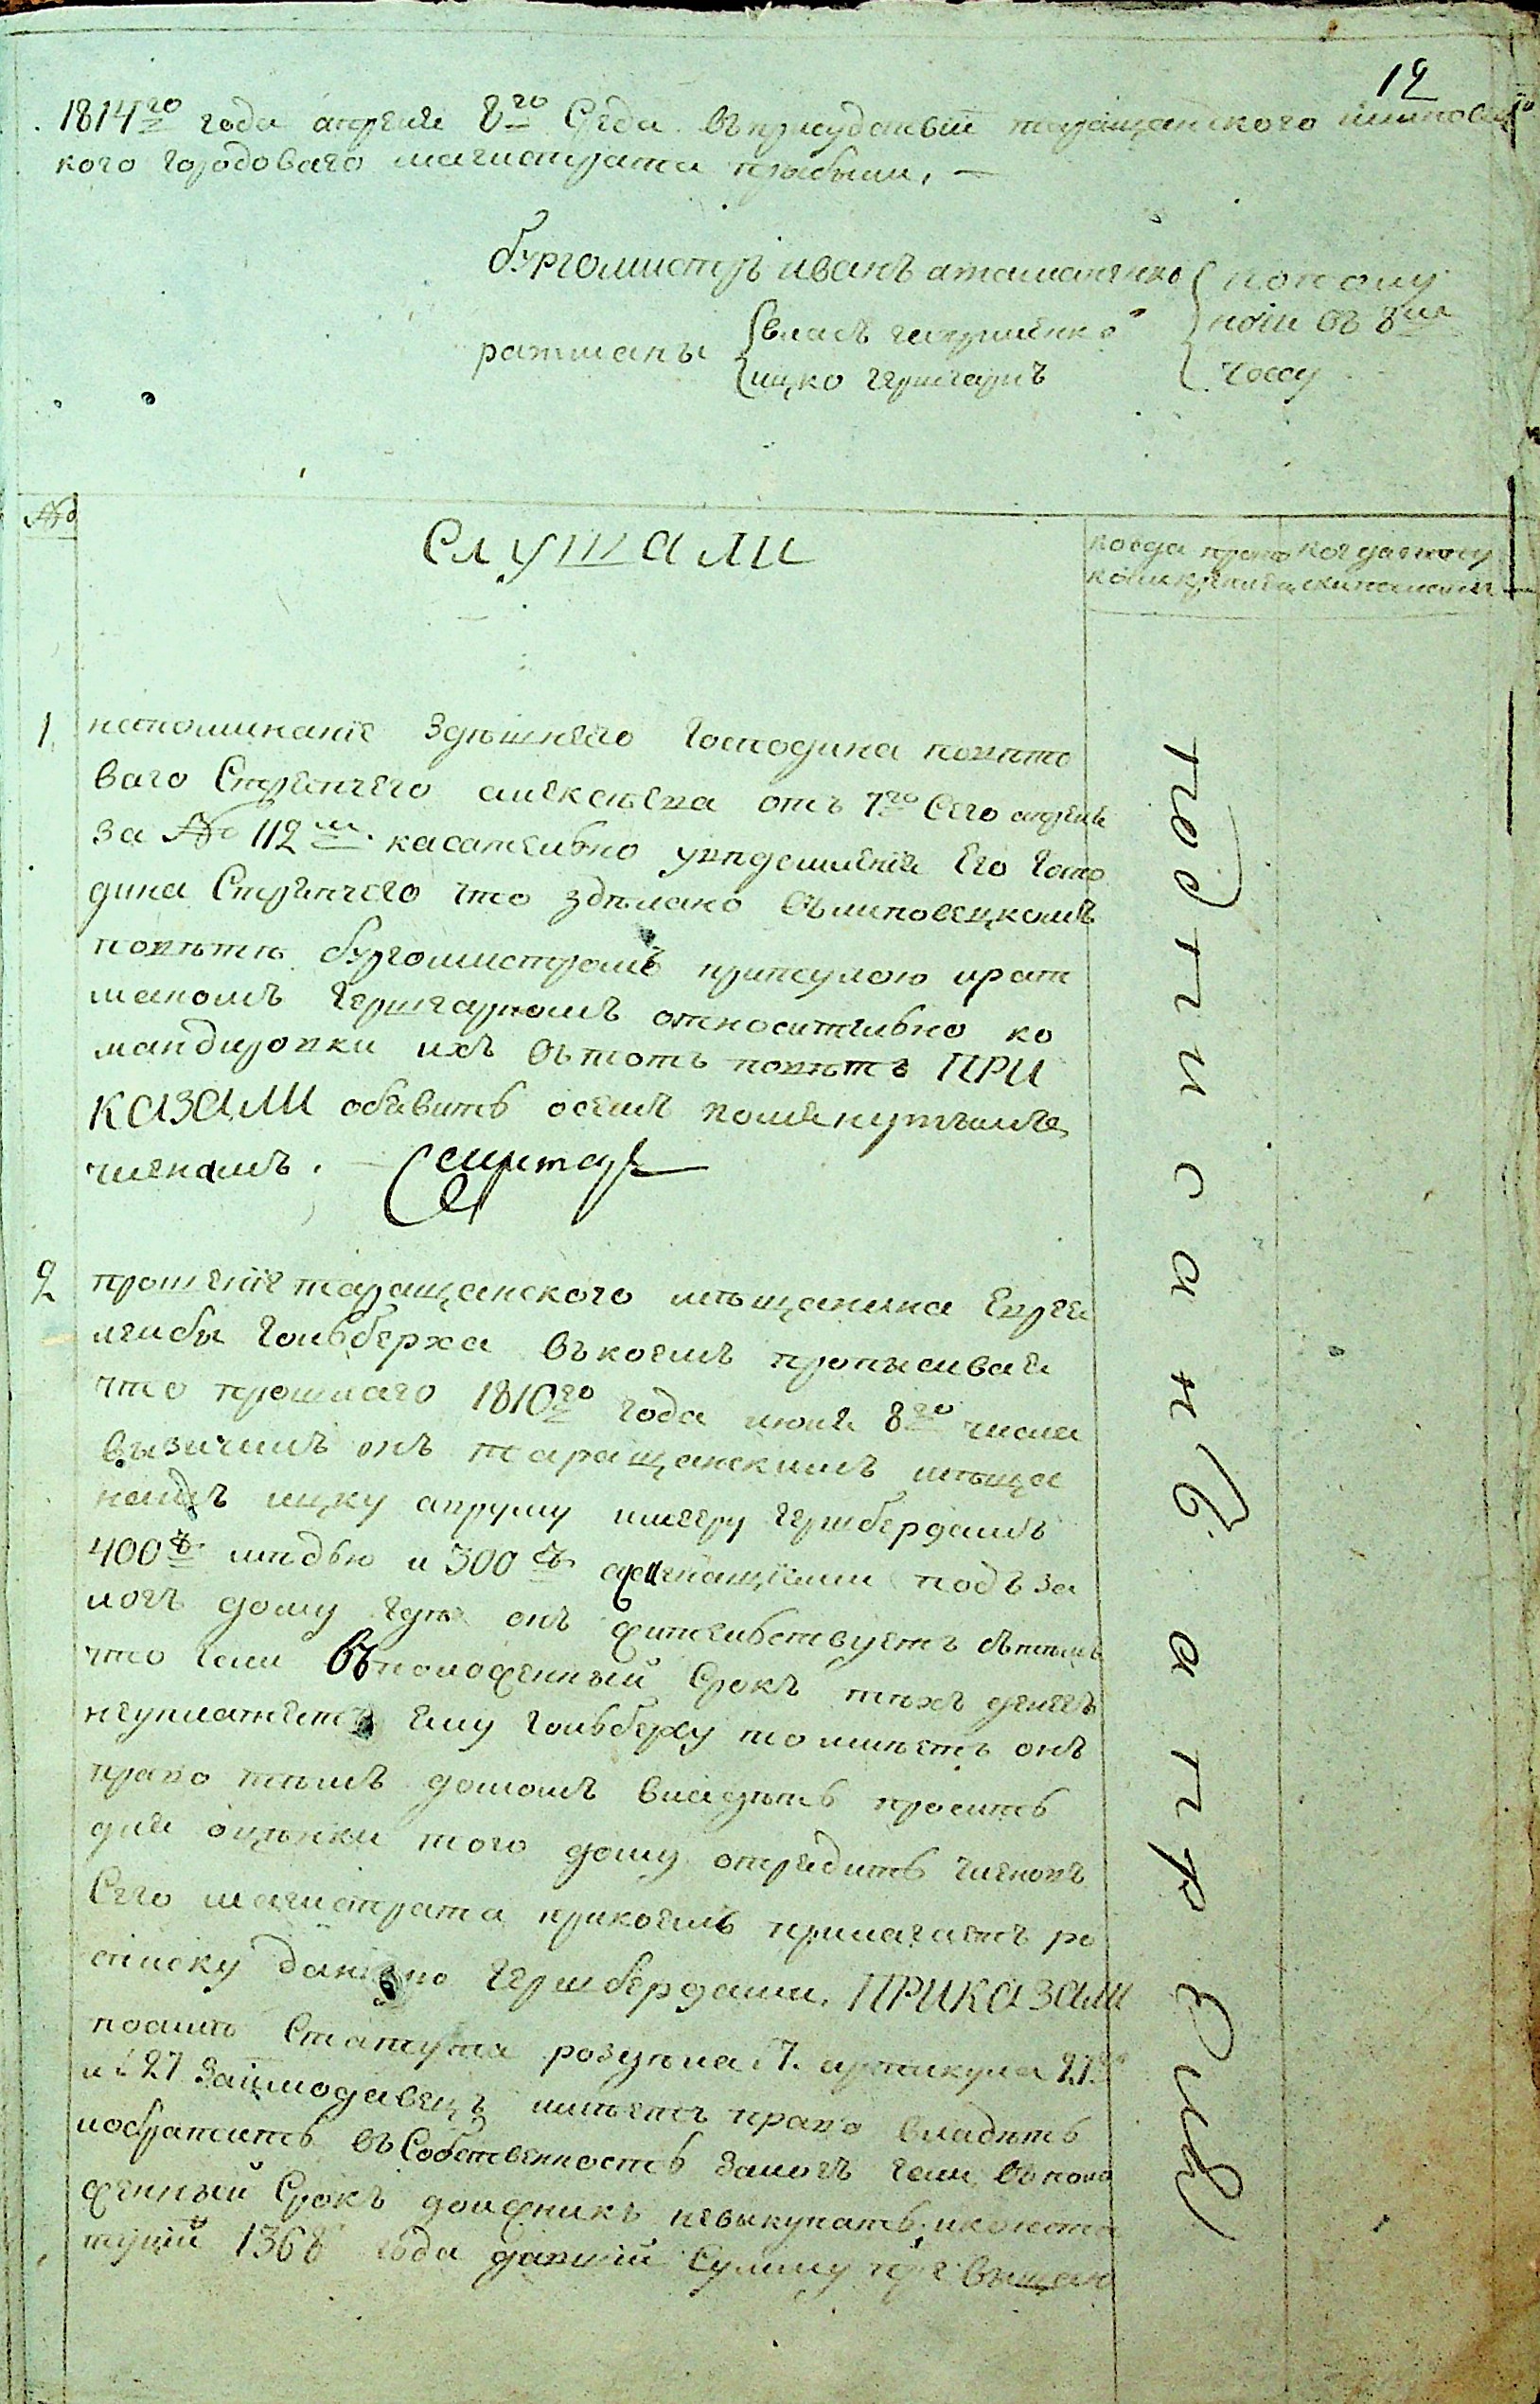 12
1814го года апреля 8го Среда въ присудствiи таращанского липовец
кого городоваго магистрата прибыли,
бургомистръ иванъ атаманенко
пополу
ратманы
власъ
ночи въ 8м
ицко гершгарнъ
часу
№
Слушали
когда прото
колъ
когда и кому
1
напоминанiе здѣшнего Господина повѣто
ваго Стряпчего алексѣева отъ 7го Сего апреля
за № 112м. касательно увѣдомленiя Его Госпо
дина Стряпчего что здѣлано въ липовецкомъ
повѣтѣ бургомистромъ присулою и рат
маномъ Гершгарномъ относительно ко
мандировки ихъ въ тотъ повѣтъ ПРИ
КАЗАЛИ обявить о семъ помянутымъ
членамъ.
2
прошенiе таращанского мѣщанина Еврея
лейбы Гольдберха въ коемъ прописывая
что прошлаго 1810го года июня 8го числа
вызичилъ онъ таращанскимъ мѣща
намъ ицку авруму Гершбердамъ
400 мѣдью и 300 асигнацiями подъ за
логъ дому где онъ жительствуетъ стѣмъ
что если въ положенный Срокъ тѣхъ денегъ
неуплатятъ Ему Гольдберху то имѣетъ онъ
право тѣмъ домомъ владѣть проситъ
для оцѣнки того дому отрядить членовъ
Сего магистрата прикоемъ прилагаетъ ро
списку данную Гершбердами, ПРИКАЗАЛИ
поелику Статута роздѣла 7. артикула 27го
и 27 Заимодавецъ имѣетъ право владѣть
и обратить въ Собственность залогъ если въ поло
женный Срокъ должникъ невыкупитъ, и конста
туцiи 1768 года давшiй Сумму
подписанъ апреля